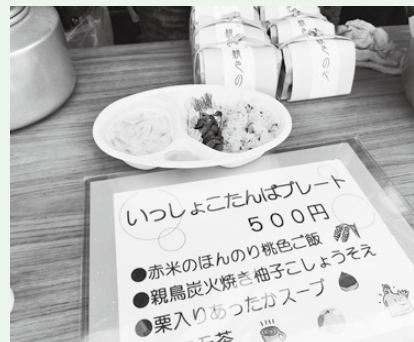 いっしょこたんばプレート
500円
●赤米のほんのり桃色ご飯
●親鳥炭火焼き柚子こしょうそえ
●栗入りあったかスープ
茶